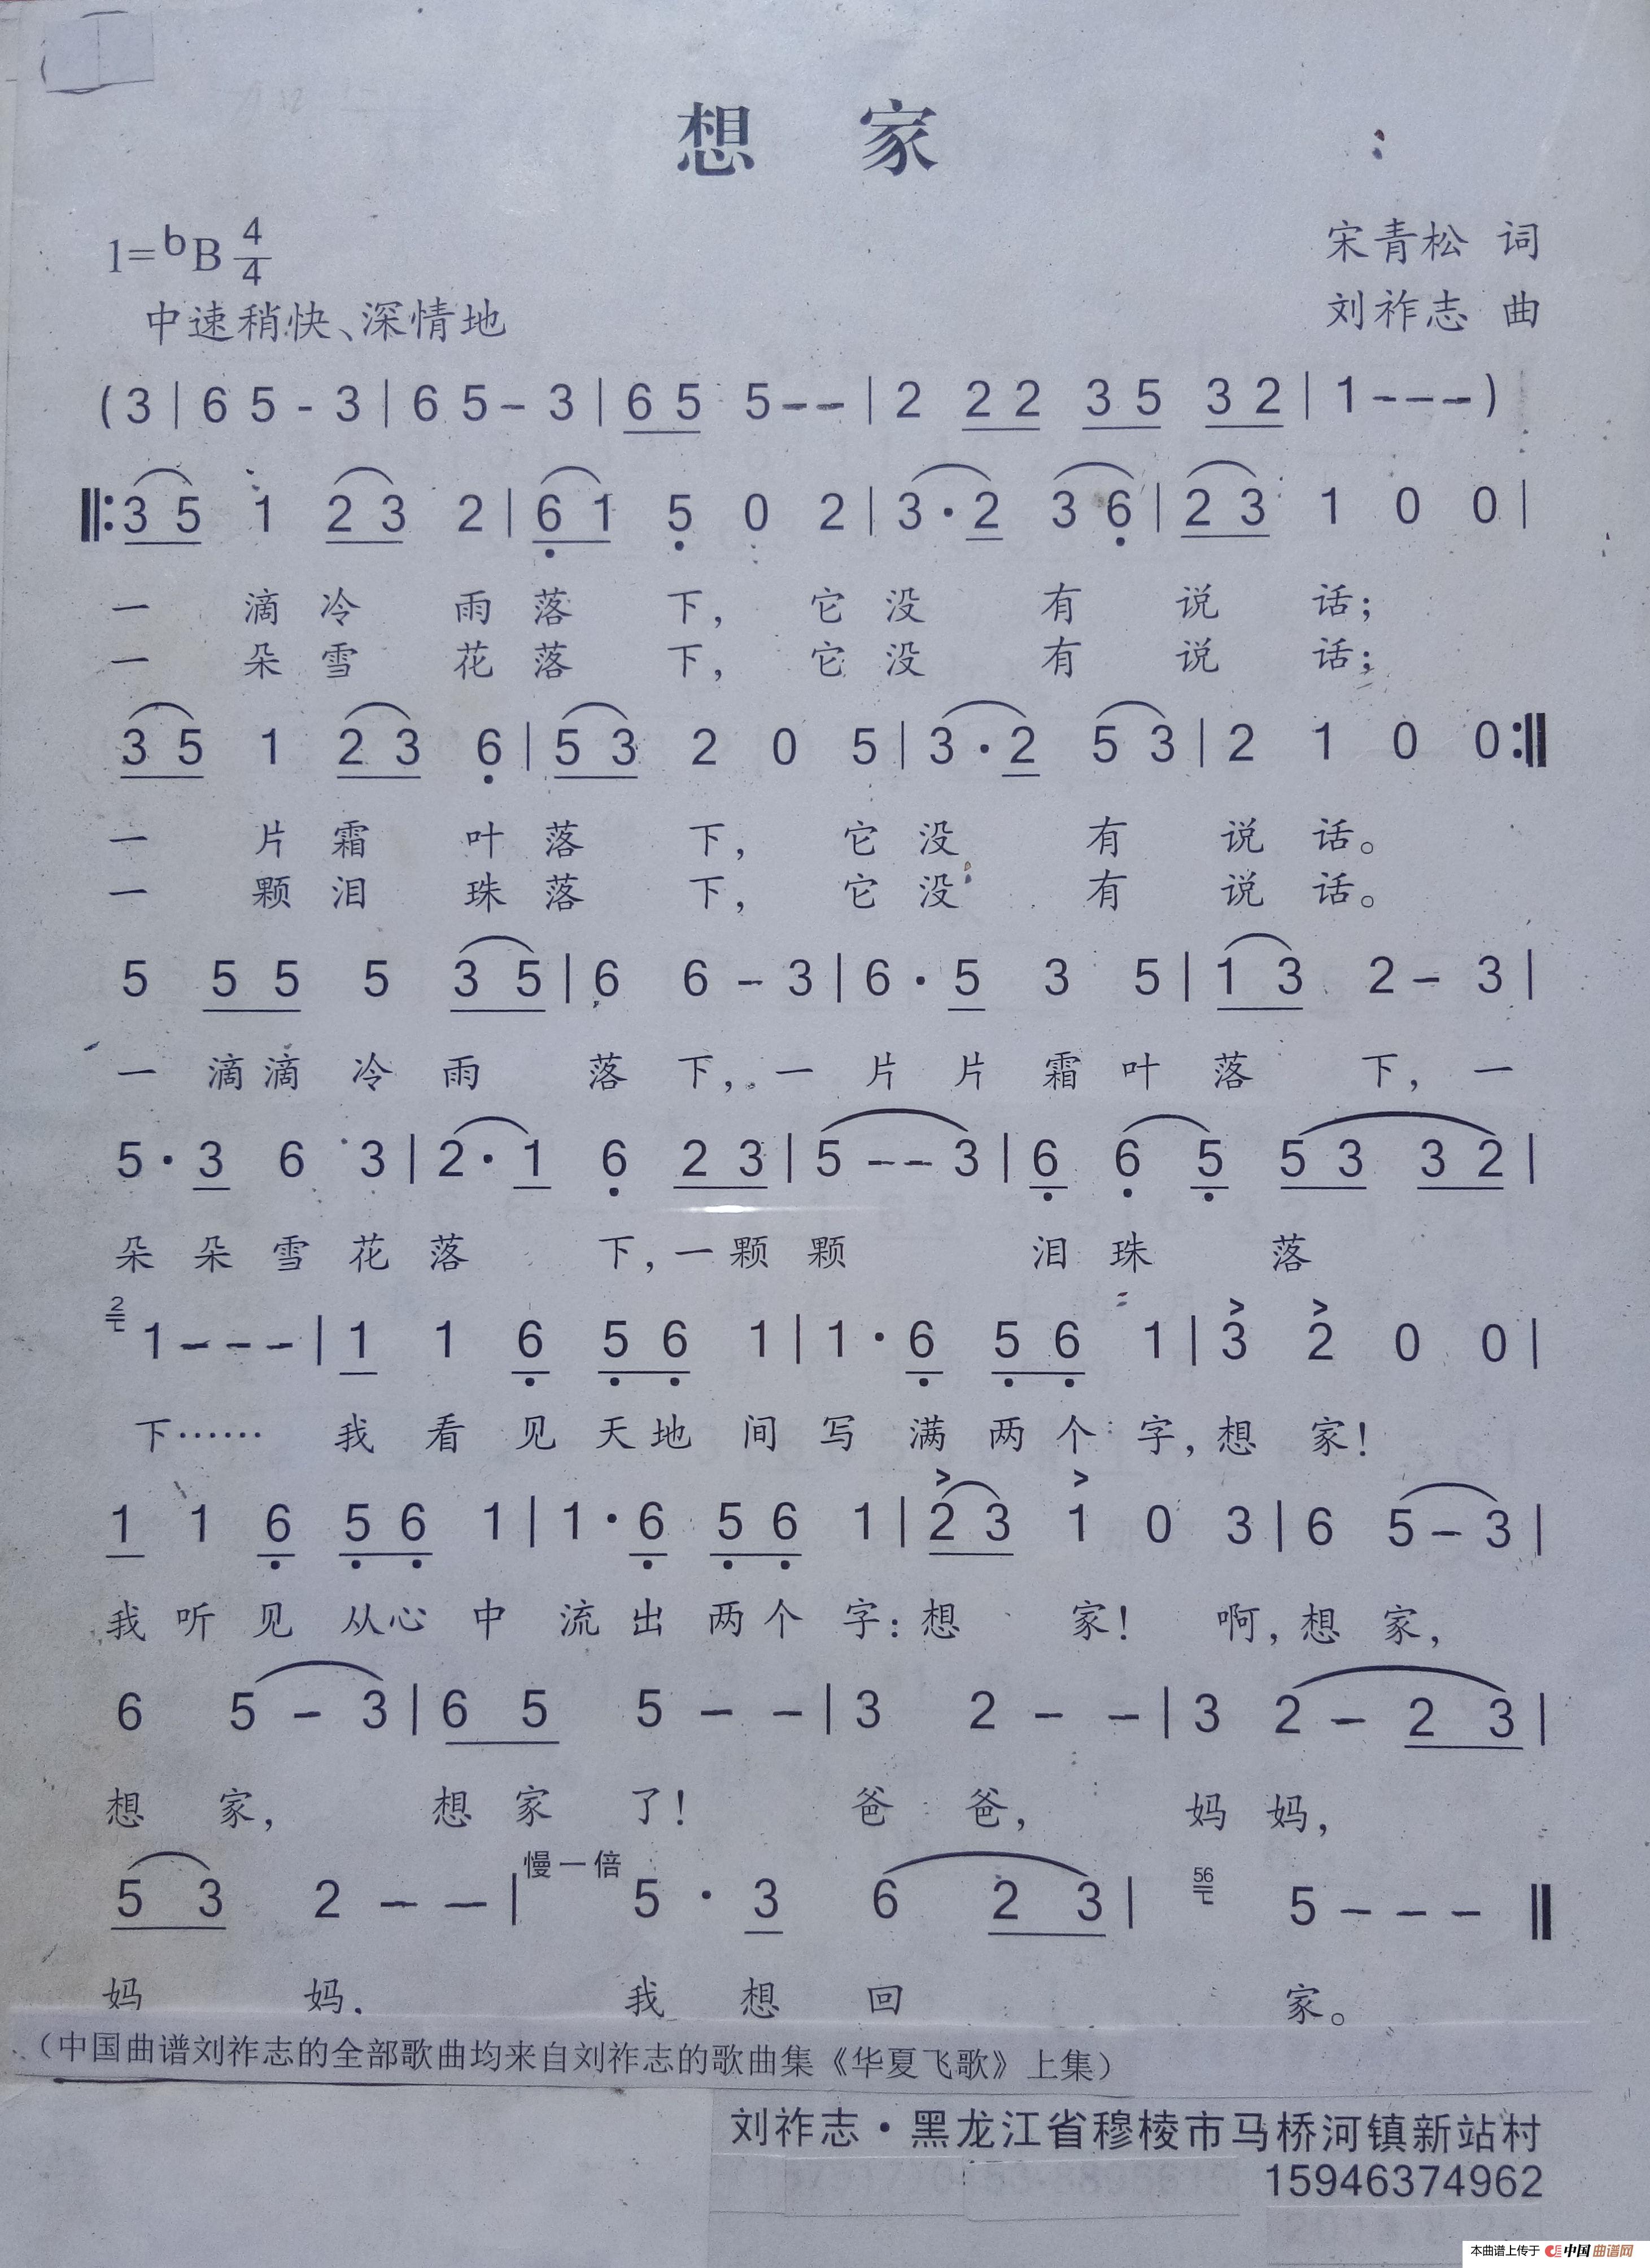 想 家
1=bB 4/4
宋青松 词
中速稍快、深情地
刘祚志 曲
(3|6 5 - 3|6 5 - 3|6 5 5 - -|2 2 2 3 5 3 2|1 - - -)
‖:3 5 1 2 3 2|6 1 5 0 2|3·2 3 6|2 3 1 0 0|
一 滴冷 雨落 下, 它没 有 说 话;
一 朵雪 花落 下, 它没 有 说 话;
3 5 1 2 3 6|5 3 2 0 5|3·2 5 3|2 1 0 0:‖
一 片霜 叶落 下, 它没 有 说 话。
一 颗泪 珠落 下, 它没 有 说 话。
5 5 5 5 3 5|6 6 - 3|6·5 3 5|1 3 2 - 3|
一 滴滴 冷 雨 落 下, 一 片 片 霜 叶 落 下, 一
5·3 6 3|2·1 6 2 3|5 - - 3|6 6 5 5 3 3 2|
朵 朵 雪 花 落 下, 一颗 颗 泪 珠 落
2 1 - - -|1 1 6 5 6 1|1·6 5 6 1|3 2 0 0|
下…… 我 看 见 天地 间 写 满 两 个 字, 想 家!
1 1 6 5 6 1|1·6 5 6 1|2 3 1 0 3|6 5 - 3|
我 听 见 从心 中 流 出 两 个 字: 想 家! 啊, 想 家,
6 5 - 3|6 5 5 - -|3 2 - -|3 2 - 2 3|
想 家, 想 家 了! 爸 爸, 妈 妈,
慢一倍
5 3 2 - -|5·3 6 2 3|56 5 - - -‖
妈 妈, 我 想 回 家。
(中国曲谱刘祚志的全部歌曲均来自刘祚志的歌曲集《华夏飞歌》上集)
刘祚志·黑龙江省穆棱市马桥河镇新站村
15946374962
本曲谱上传于 中国曲谱网